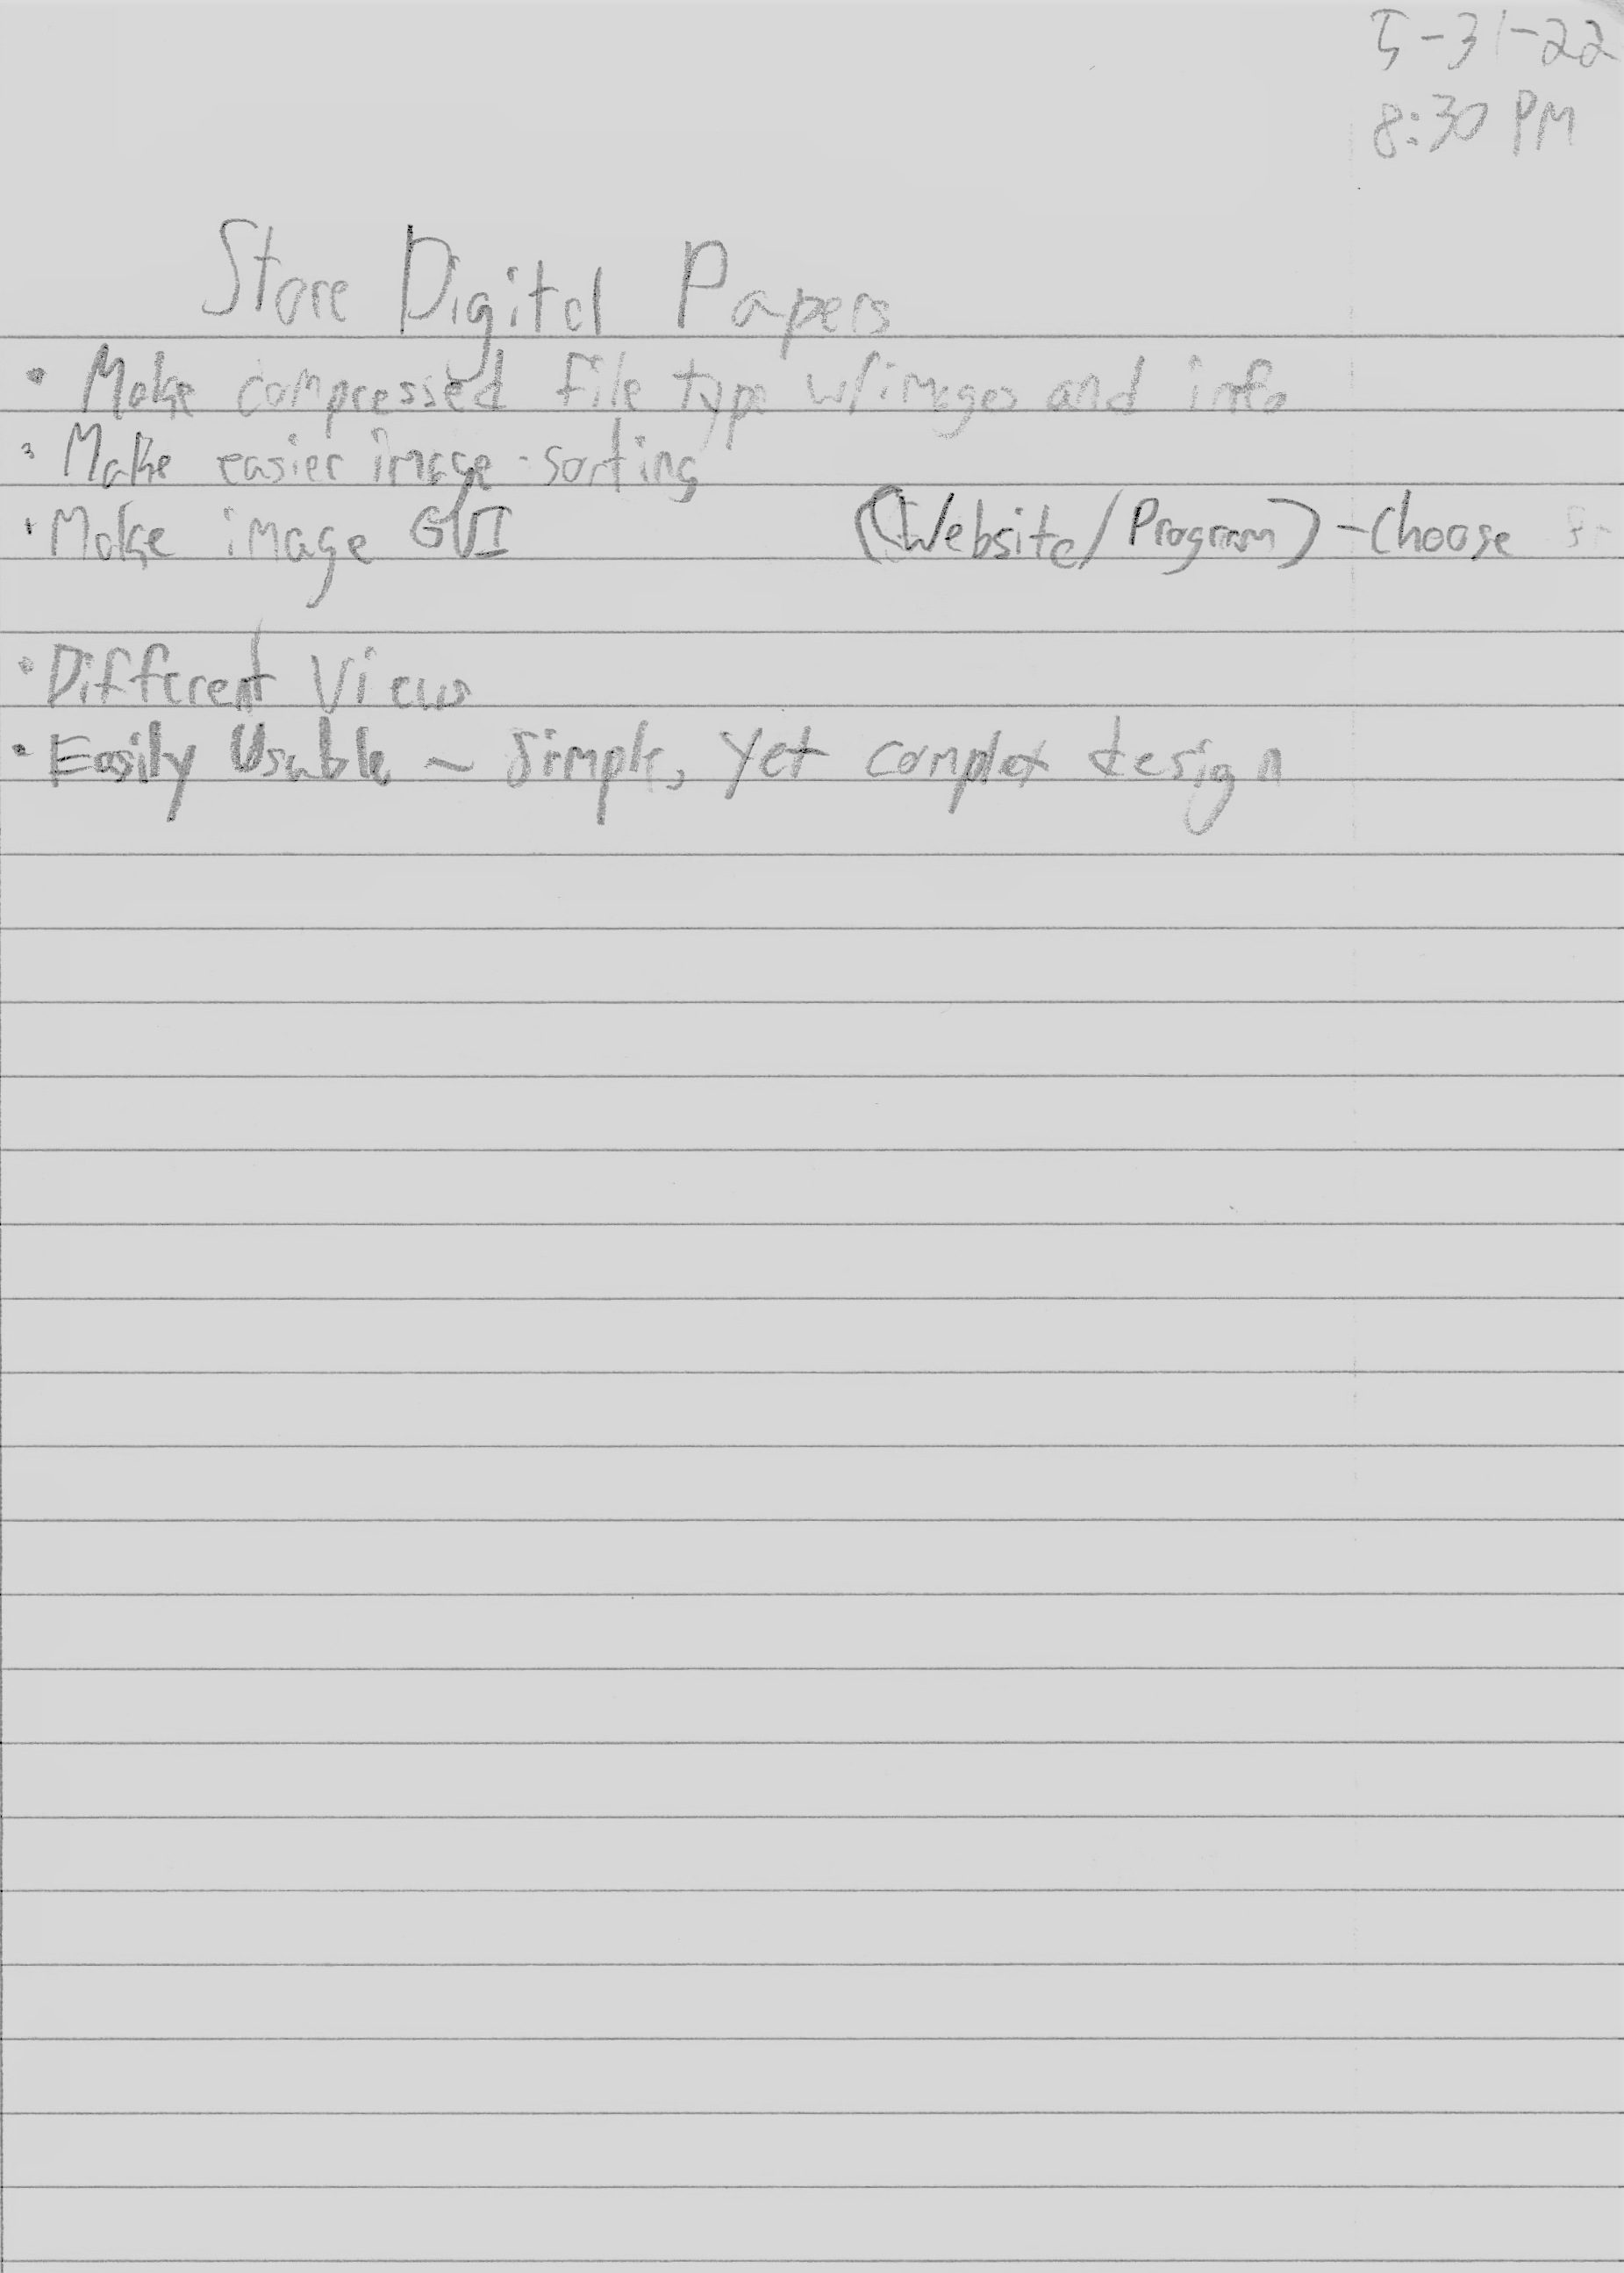 5-31-22
8:30 PM
Store Digital Papers
• Make compressed file type w/images and info
• Make easier image-sorting
• Make image GUI (Website/Program) - Choose
• Different View
• Easily Usable ~ Simple, Yet complex design